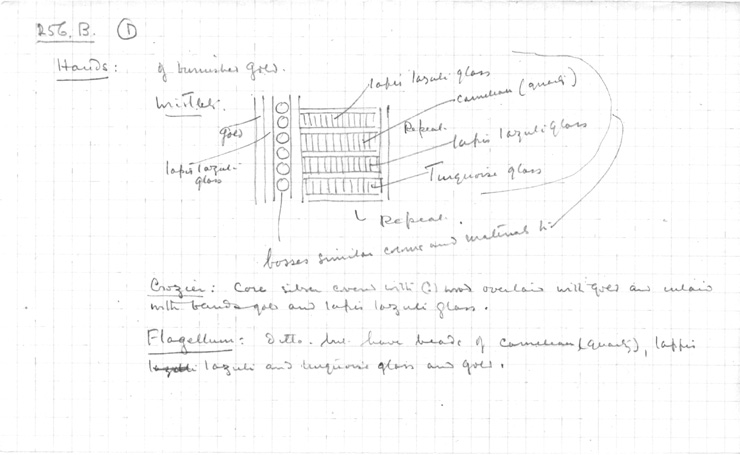 256, B. ①
Hands: of burnished gold.
Wristlets.
lapis lazuli glass
carnelian (quartz)
gold
Repeat.
lapis lazuli glass
lapis lazuli
glass
Turquoise glass
Repeat.
bosses similar colour and material to
Crozier: Core silver covered with (?) wood overlaid with gold and inlaid
with bands gold and lapis lazuli glass.
Flagellum: Ditto. but have beads of carnelian (quartz), lappis
lazuli and turquoise glass and gold.